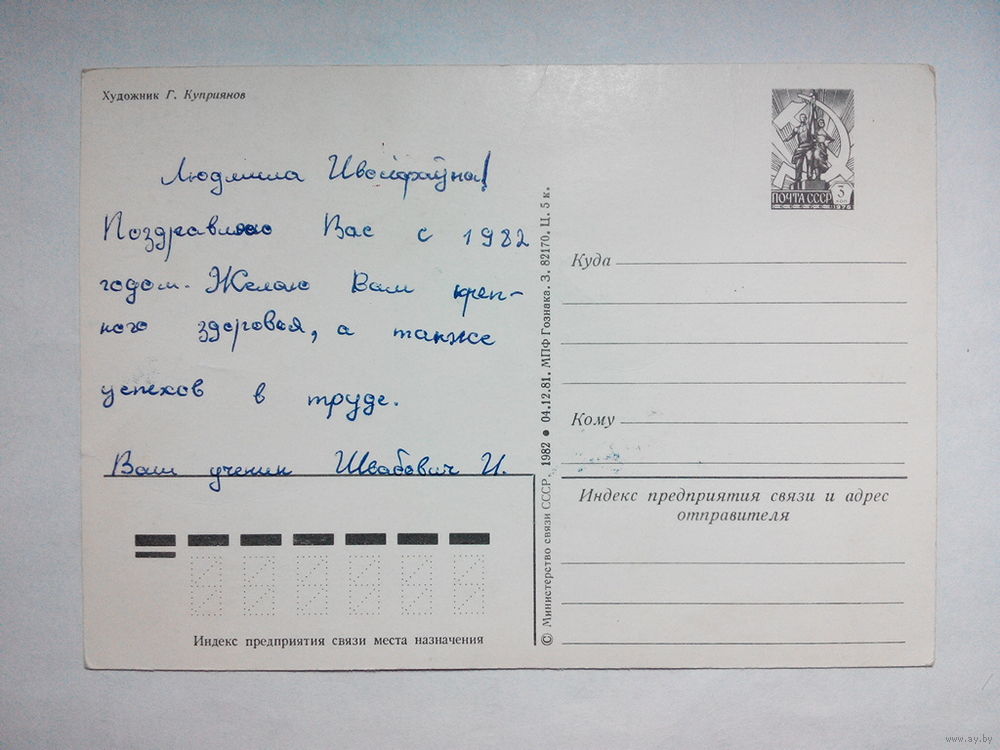 Художник Г. Куприянов
ПОЧТА СССР
3
коп
Людмила
Поздравляю Вас с 1982
годом. Желаю Вам креп-
кого здоровья, а также
успехов в труде.
Ваш ученик И.
Куда
Кому
Индекс предприятия связи и адрес
отправителя
Индекс предприятия связи места назначения
© Министерство связи СССР, 1982 ● 04.12.81. МПФ Гознака. З. 82170. Ц. 5 к.
www.ay.by